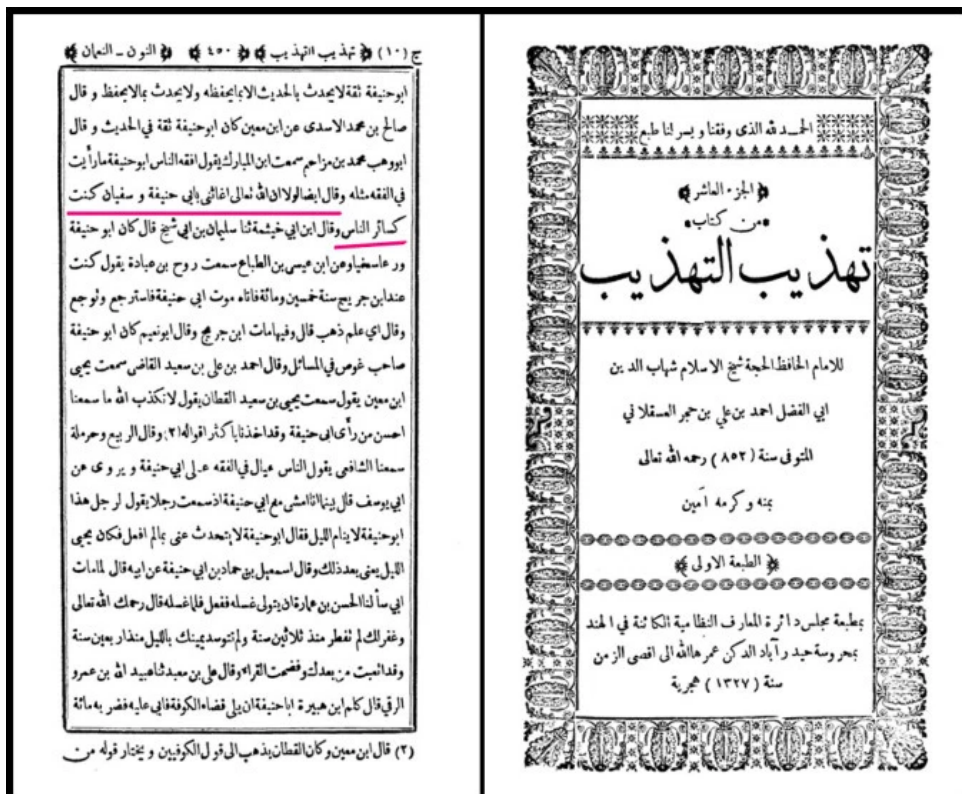 الحمد لله الذى وفقنا ويسر لنا طبع
الجزء العاشر
من كتاب
تهذيب التهذيب
للامام الحافظ الحجة شيخ الاسلام شهاب الدين
ابي الفضل احمد بن علي بن حجر العسقلاني
المتوفى سنة (٨٥٢) رحمه الله تعالى
بمنه وكرمه آمين
الطبعة الاولى
بمطبعة مجلس دائرة المعارف النظامية الكائنة في الهند
بمحروسة حيدر آباد الدكن عمرها الله الى اقصى الزمن
سنة (١٣٢٧) هجرية
ج (١٠) تهذيب التهذيب ٤٥٠ النون - النعمان
ابو حنيفة ثقة لا يحدث بالحديث الا بما يحفظه ولا يحدث بما لا يحفظ و قال
صالح بن محمد الاسدى عن ابن معين كان ابو حنيفة ثقة في الحديث و قال
ابو وهب محمد بن مزاحم سمعت ابن المبارك يقول افقه الناس ابو حنيفة ما رأيت
في الفقه مثله وقال ايضا لولا ان الله تعالى اغاثنى بابي حنيفة و سفيان كنت
كسائر الناس وقال ابن ابي خيثمة ثنا سليمان بن ابي شيخ قال كان ابو حنيفة
ورعا سخيا وعن ابن عيسى بن الطباع سمعت روح بن عبادة يقول كنت
عند ابن جريج سنة خمسين ومائة فاتاه موت ابي حنيفة فاسترجع وتوجع
وقال اي علم ذهب قال وفيها مات ابن جريج وقال ابو نعيم كان ابو حنيفة
صاحب غوص في المسائل وقال احمد بن على بن سعيد القاضى سمعت يحيى
ابن معين يقول سمعت يحيى بن سعيد القطان يقول لا نكذب الله ما سمعنا
احسن من رأى ابى حنيفة وقد اخذنا باكثر اقواله (٢) وقال الربيع وحرملة
سمعنا الشافعى يقول الناس عيال في الفقه على ابي حنيفة و يروى عن
ابي يوسف قال بينما انا امشى مع ابي حنيفة اذ سمعت رجلا يقول لرجل هذا
ابو حنيفة لا ينام الليل فقال ابو حنيفة لا يتحدث عنى بما لم افعل فكان يحيى
الليل يعنى بعد ذلك وقال اسمعيل بن حماد بن ابي حنيفة عن ابيه قال لما مات
ابي سألنا الحسن بن عمارة ان يتولى غسله ففعل فلما غسله قال رحمك الله تعالى
وغفر لك لم تفطر منذ ثلاثين سنة ولم تتوسد يمينك بالليل منذ اربعين سنة
وقد اتعبت من بعدك وفضحت القراء وقال على بن معبد ثنا عبيد الله بن عمرو
الرقي قال كلم ابن هبيرة ابا حنيفة ان يلى قضاء الكوفة فابى عليه فضربه مائة
(٢) قال ابن معين وكان القطان يذهب الى قول الكوفيين و يختار قوله من